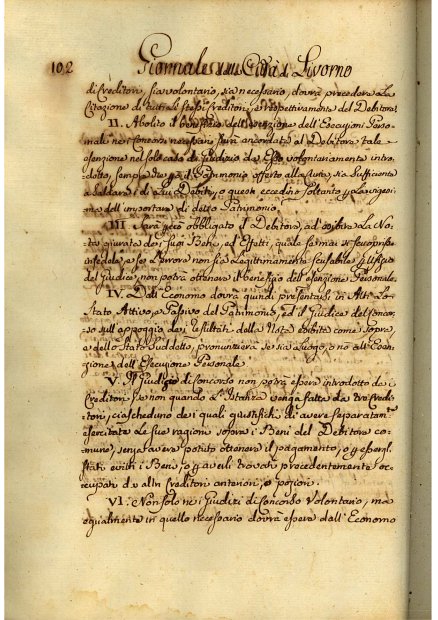 102 Giornale Città Livorno
di Creditori, sia volontario, sia necessario, dovrà precedere la
Citazione di tutti li stessi Creditori, e respettivamente del Debitore.
II. Abolito il benefizio dell'esenzione dell'Esecuzioni Perso=
nali ne i Concorsi necessari sarà accordata al Debitore tale
esenzione nel solo caso di giudizio da Esso volontariamente intro=
dotto, sempre che il Patrimonio offerto alla Cura, sia sufficiente
a saldare i di Lui Debiti, o questi eccedino soltanto la vigesi=
ma dell'importare di detto Patrimonio.
III. Sarà però obbligato il Debitore, ad esibire la No=
ta giurata dei suoi Beni, ed Effetti, quale se mai si scuoprisse
infedele, e se l'errore non sia legittimamente scusabile
del Giudice, non potrà ottenere il Benefizio dell'esenzione Personale.
IV. Dall'Economo dovrà quindi presentarsi in Atti lo
Stato Attivo, e Passivo del Patrimonio, ed il Giudice del Concor=
so sull'appoggio dei resultati della Nota esibita come sopra,
e dello Stato Suddetto, pronunzierà se sia Luogo, o no all'Esen=
zione dell'Esecuzione Personale
V. Il Giudizio di Concorso non potrà essere introdotto dai
Creditori se non quando l'Istanza venga fatta da tre Credi=
tori, ciascheduno dei quali giustifichi di avere separatam.e
esercitate le sue ragioni sopra i Beni del Debitore co=
mune, senza avere potuto ottenere il pagamento, o per essergli
stati evitti i Beni, o per averli trovati precedentemente oc=
cupati da altri Creditori anteriori, o poziori.
VI. Non solo ne i Giudizi di Concorso Volontario, ma
egualmente in quello necessario dovrà essere dall'Economo